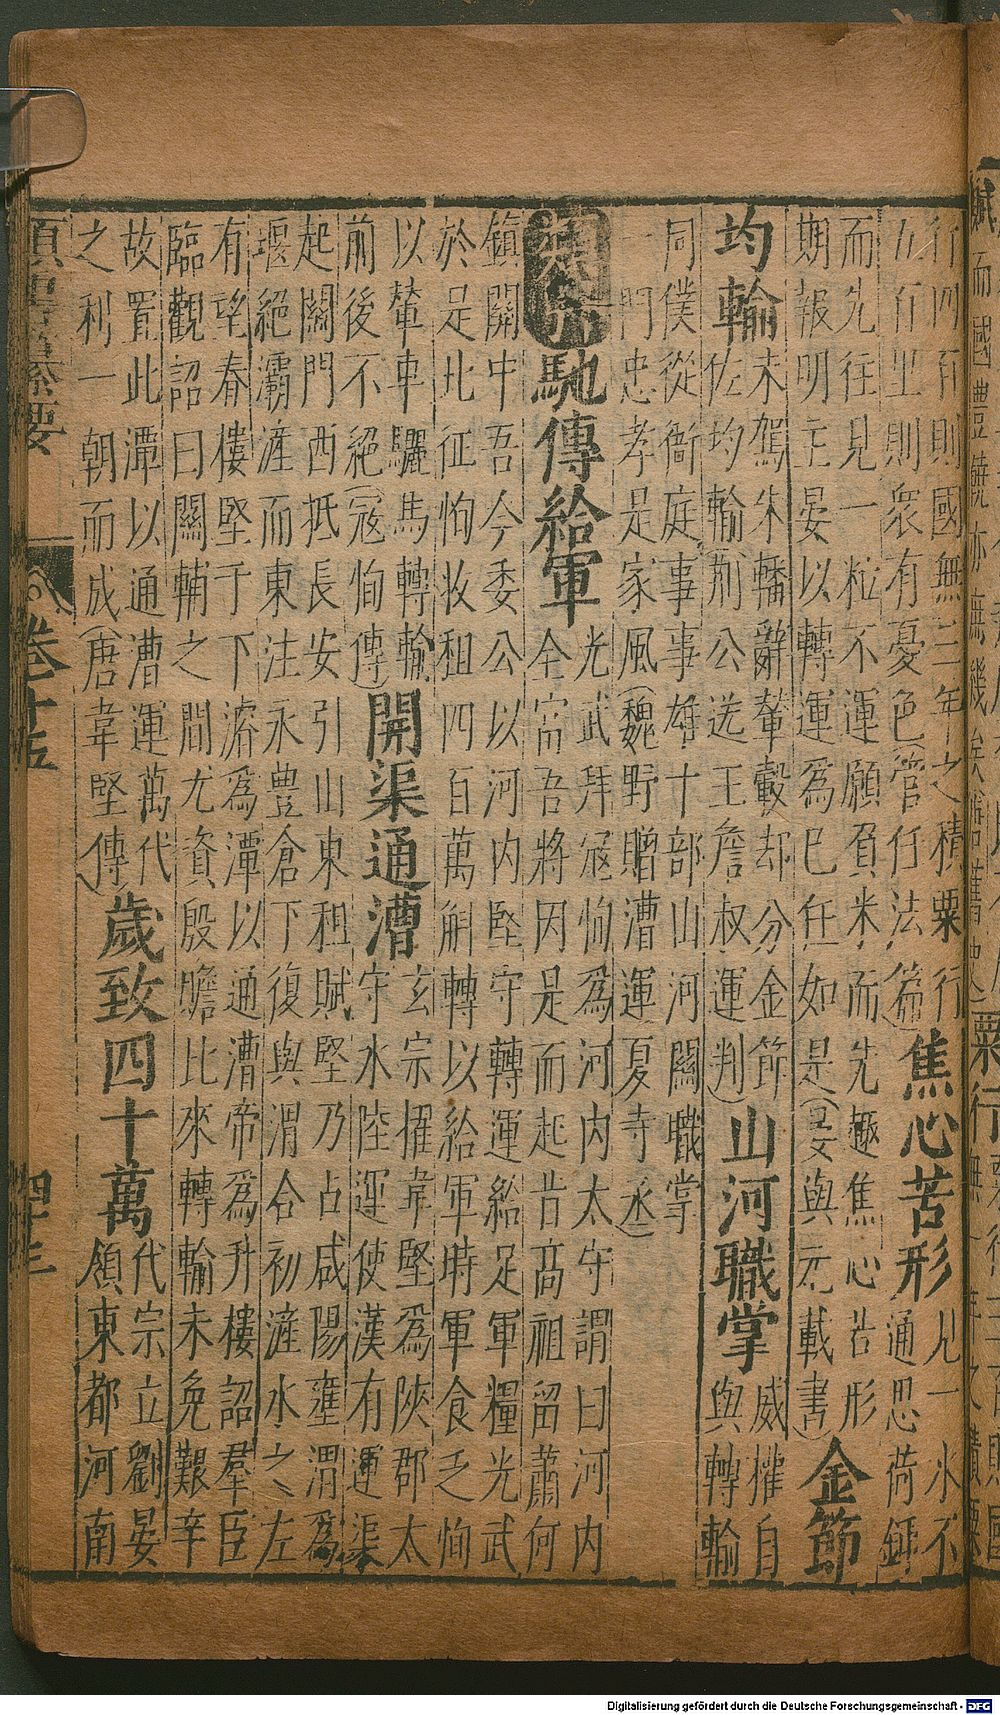 行四百則國無二年之積粟行焦心苦形見一水不
五百里則衆有憂色(管仔法篇)通思荷鉀
而先往見一粒不運願負米而先趣焦心苦形
期報明主晏以轉運爲已任如是(晏與元載書)金節
均輸未駕朱轓辭輦轂却分金節山河職掌威權自
佐均輸荊公送王詹叔運判)與轉輸
同僕從衙庭事事雄十部山河關職掌
一門忠孝是家風(魏野贈漕運夏寺丞)
馳傳給軍光武拜冦恂爲河内太守謂曰河内
全富吾將因是而起昔高祖留蕭何
鎮關中吾今委公以河内堅守轉運給足軍糧光武
於是北征恂收租四百萬斛轉以給軍時軍食乏恂
以輦車驪馬轉輸開渠通漕玄宗擢韋堅爲陝郡太
前後不絕(冦恂傳)守水陸運使漢有運渠
起關門西抵長安引山東租賦堅乃占咸陽壅渭爲
堰絕灞滻而東注永豊倉下復與渭合初滻水之左
有望春樓堅于下濬爲潭以通漕帝爲升樓詔羣臣
臨觀詔曰關輔之間尤資殷贍比來轉輸未免艱辛
故置此潭以通漕運萬代歲致四十萬代宗立劉晏
之利一朝而成(唐韋堅傳)領東都河南
卷十五
四十三
Digitalisierung gefördert durch die Deutsche Forschungsgemeinschaft - DFG